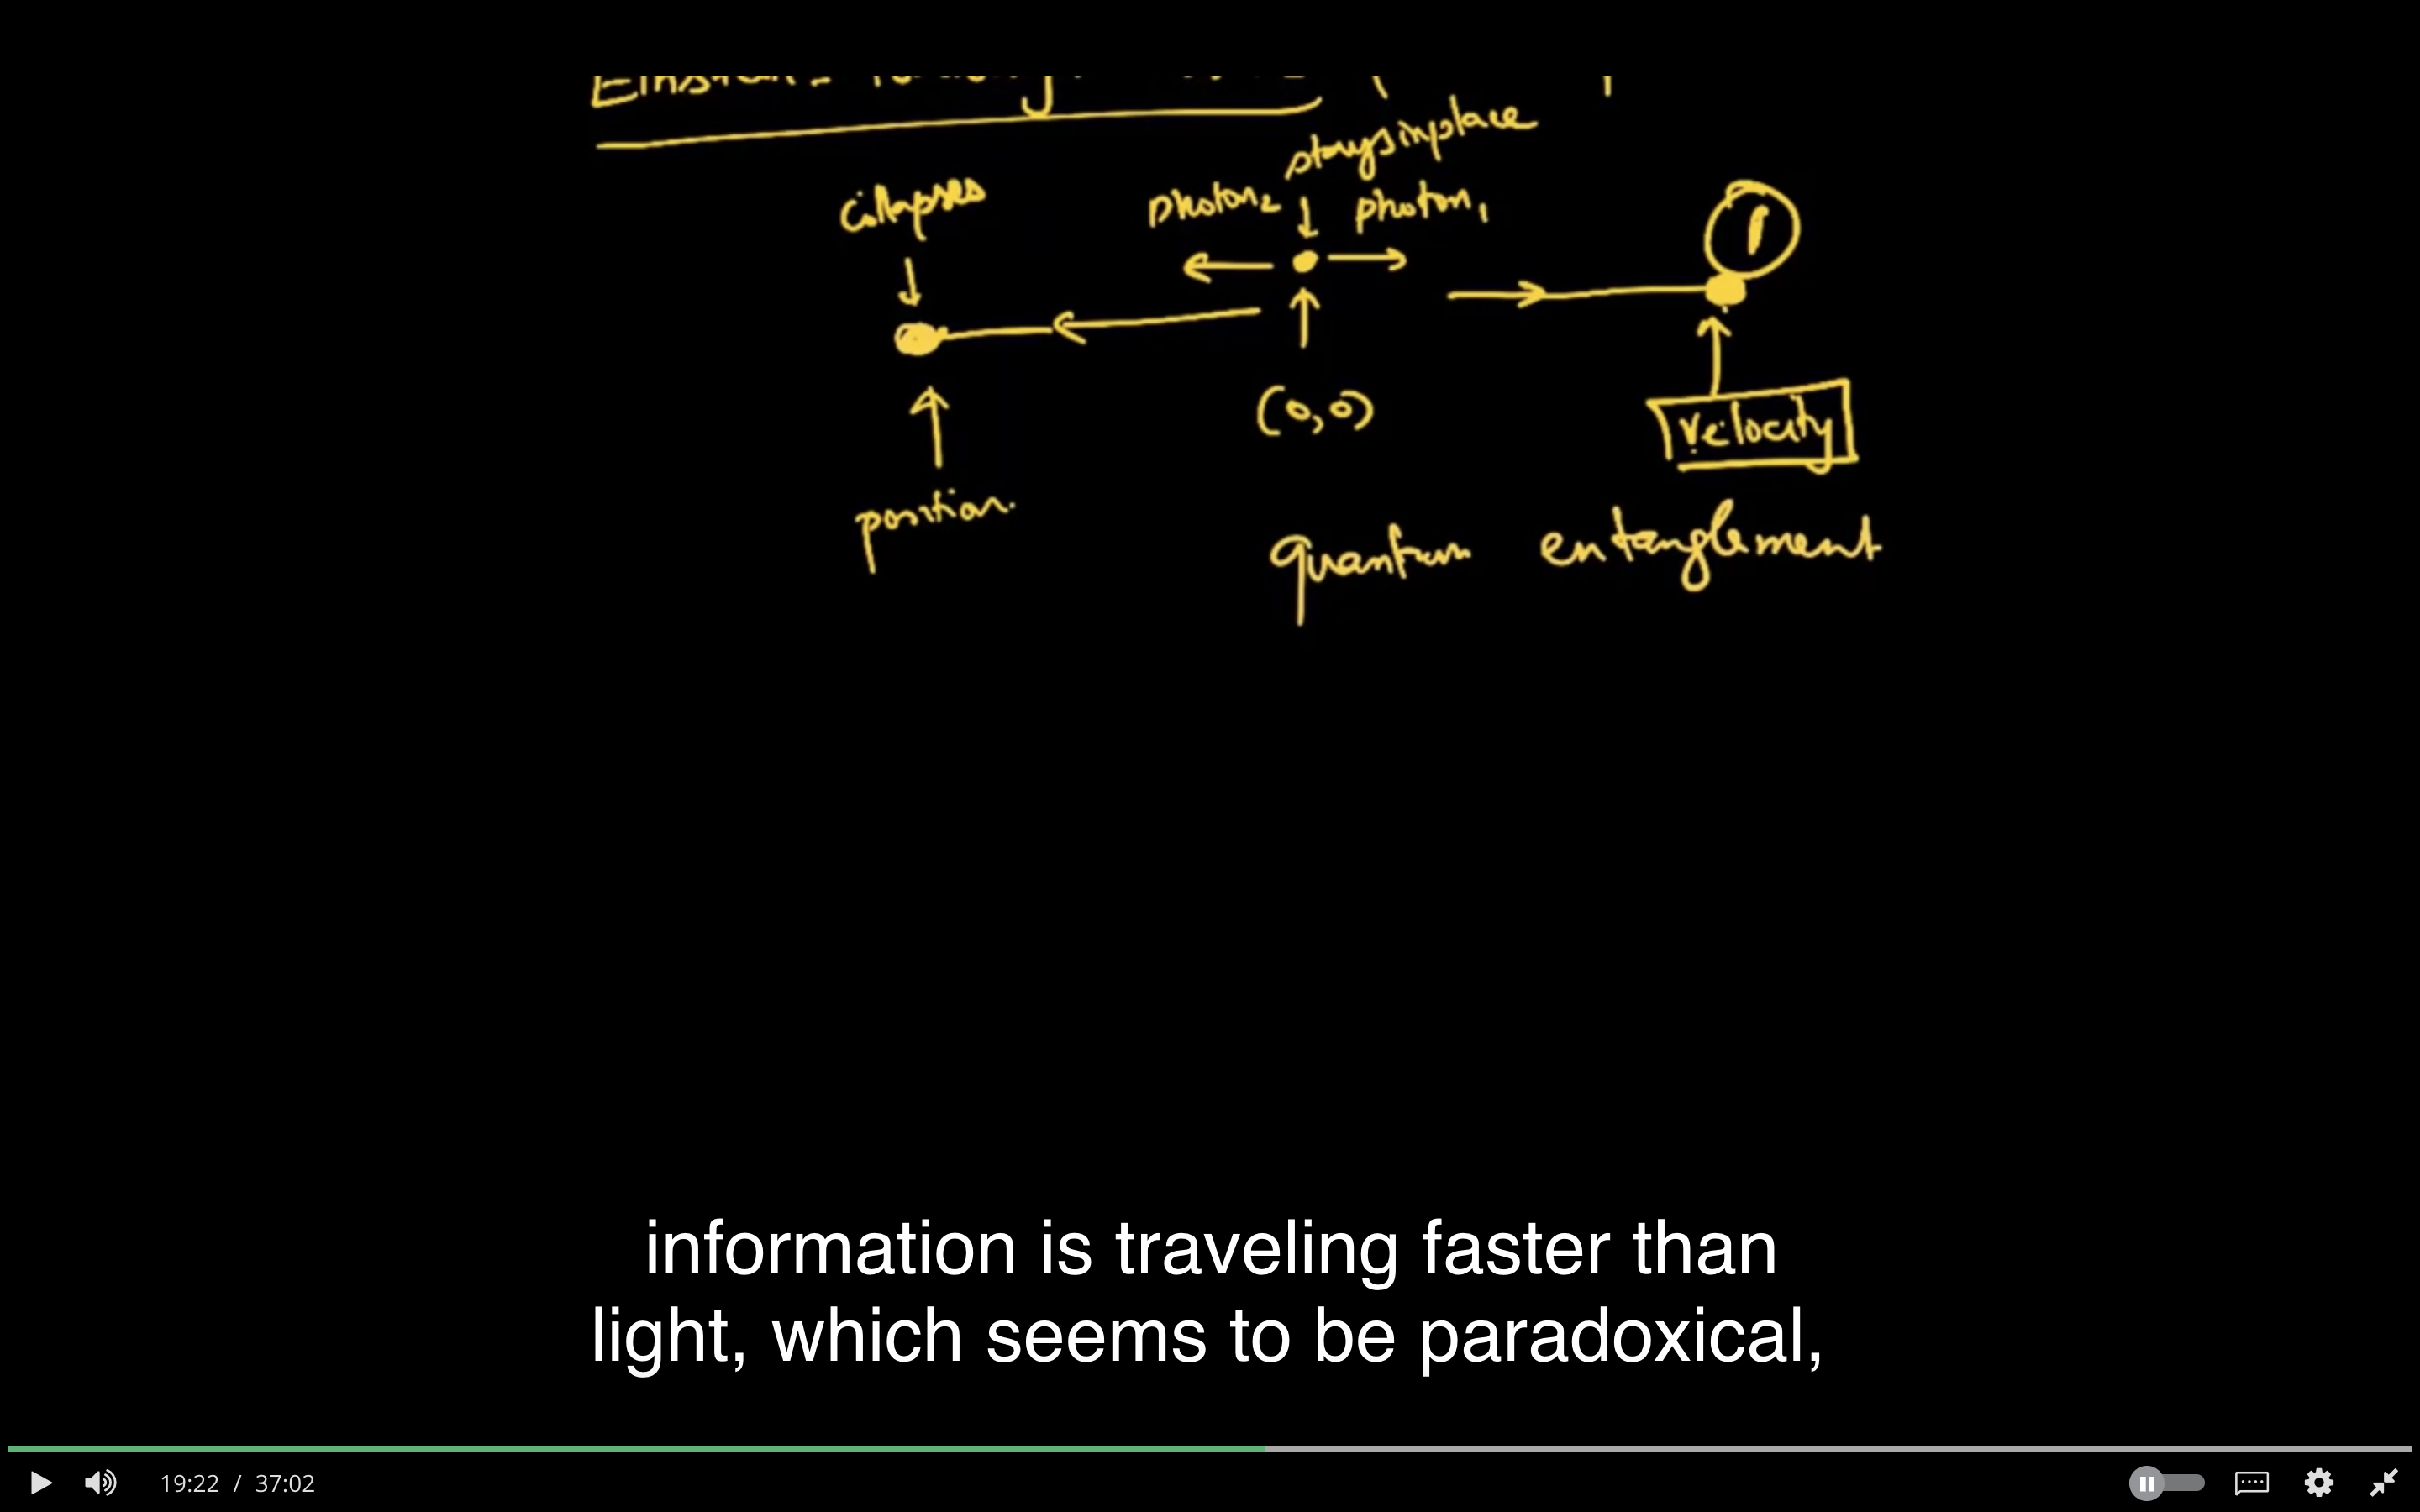 stays in place
collapses
photon2
photon1
1
(0,0)
velocity
position.
quantum entanglement
information is traveling faster than
light, which seems to be paradoxical,
19:22 / 37:02